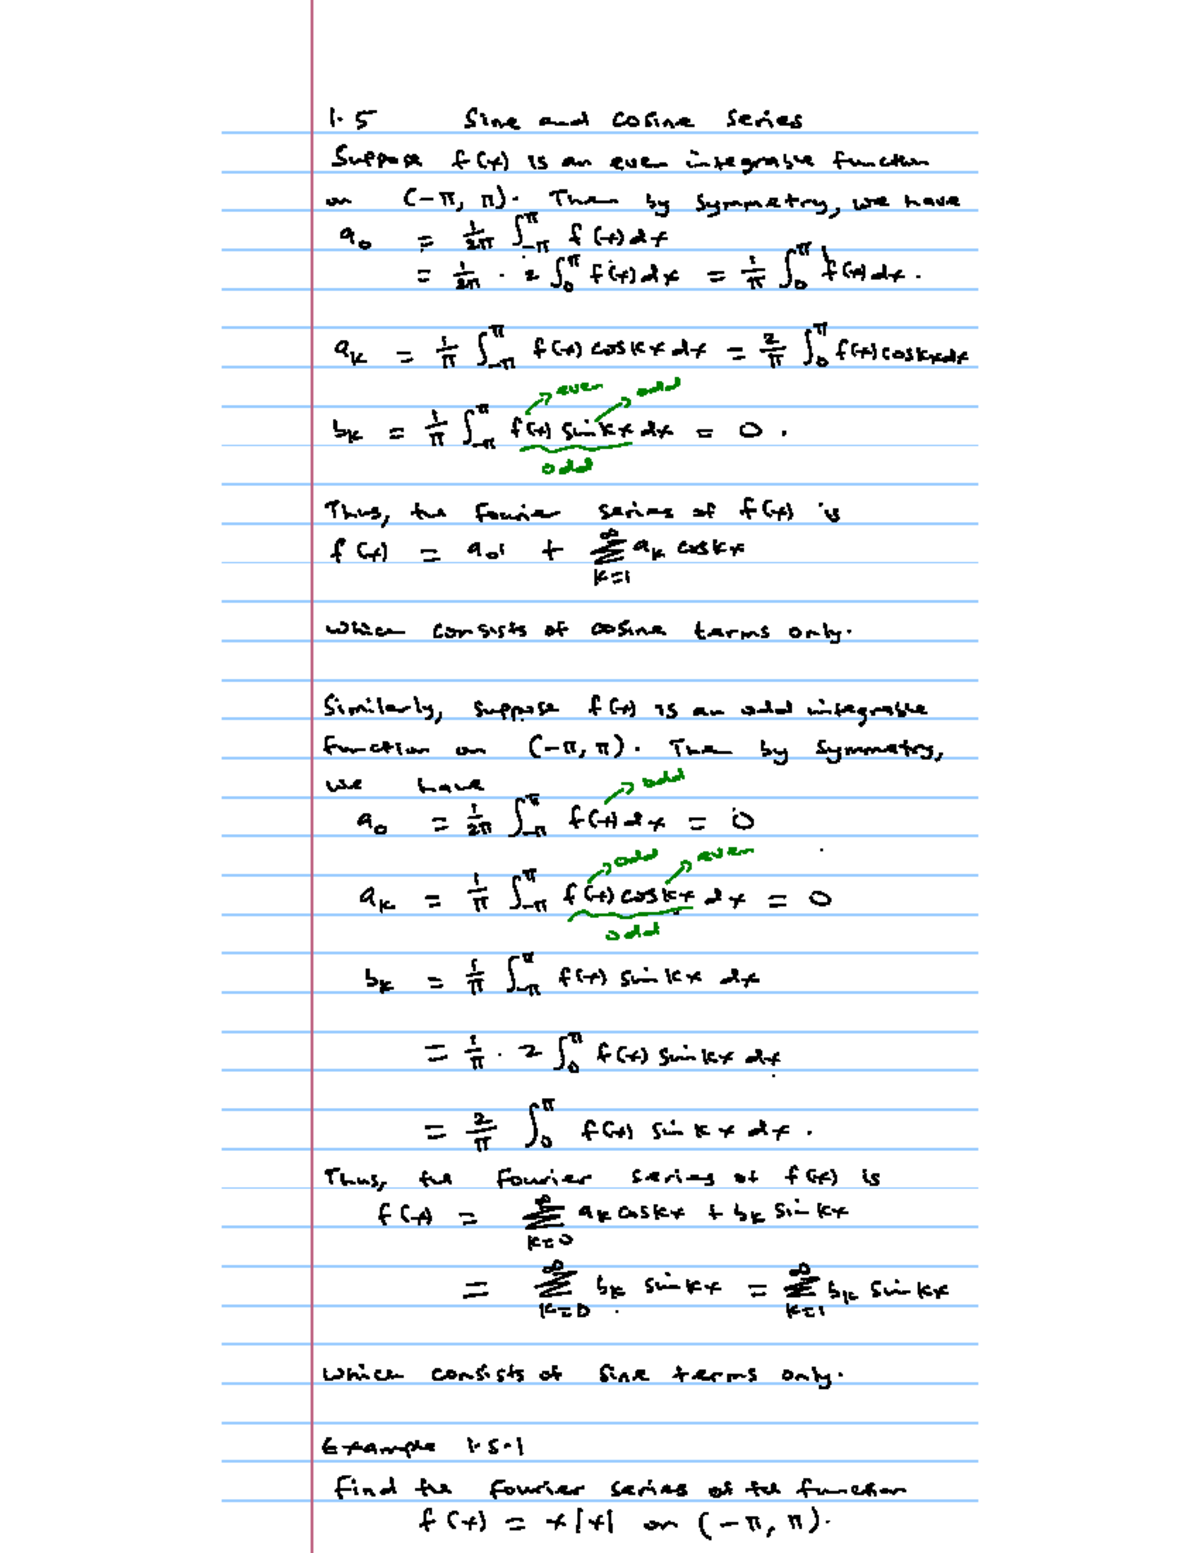 1.5 Sine and cosine series
Suppose f(x) is an even integrable function
on (-π, π). Then by symmetry, we have
a₀ = 1/2π ∫_{-π}^{π} f(x)dx
= 1/2π · 2 ∫_0^π f(x)dx = 1/π ∫_0^π f(x)dx.
a_k = 1/π ∫_{-π}^{π} f(x) cos kx dx = 2/π ∫_0^π f(x) cos kx dx
even odd
b_k = 1/π ∫_{-π}^{π} f(x) sin kx dx = 0.
odd
Thus, the Fourier series of f(x) is
f(x) = a₀ + ∑_{k=1}^∞ a_k cos kx
which consists of cosine terms only.
Similarly, suppose f(x) is an odd integrable
function on (-π, π). Then by symmetry,
we have
odd
a₀ = 1/2π ∫_{-π}^{π} f(x)dx = 0
odd even
a_k = 1/π ∫_{-π}^{π} f(x) cos kx dx = 0
odd
b_k = 1/π ∫_{-π}^{π} f(x) sin kx dx
= 1/π · 2 ∫_0^π f(x) sin kx dx
= 2/π ∫_0^π f(x) sin kx dx.
Thus, the Fourier series of f(x) is
f(x) = ∑_{k=0}^∞ a_k cos kx + b_k sin kx
= ∑_{k=0}^∞ b_k sin kx = ∑_{k=1}^∞ b_k sin kx
which consists of sine terms only.
Example 1.5.1
Find the Fourier series of the function
f(x) = x|x| on (-π, π).